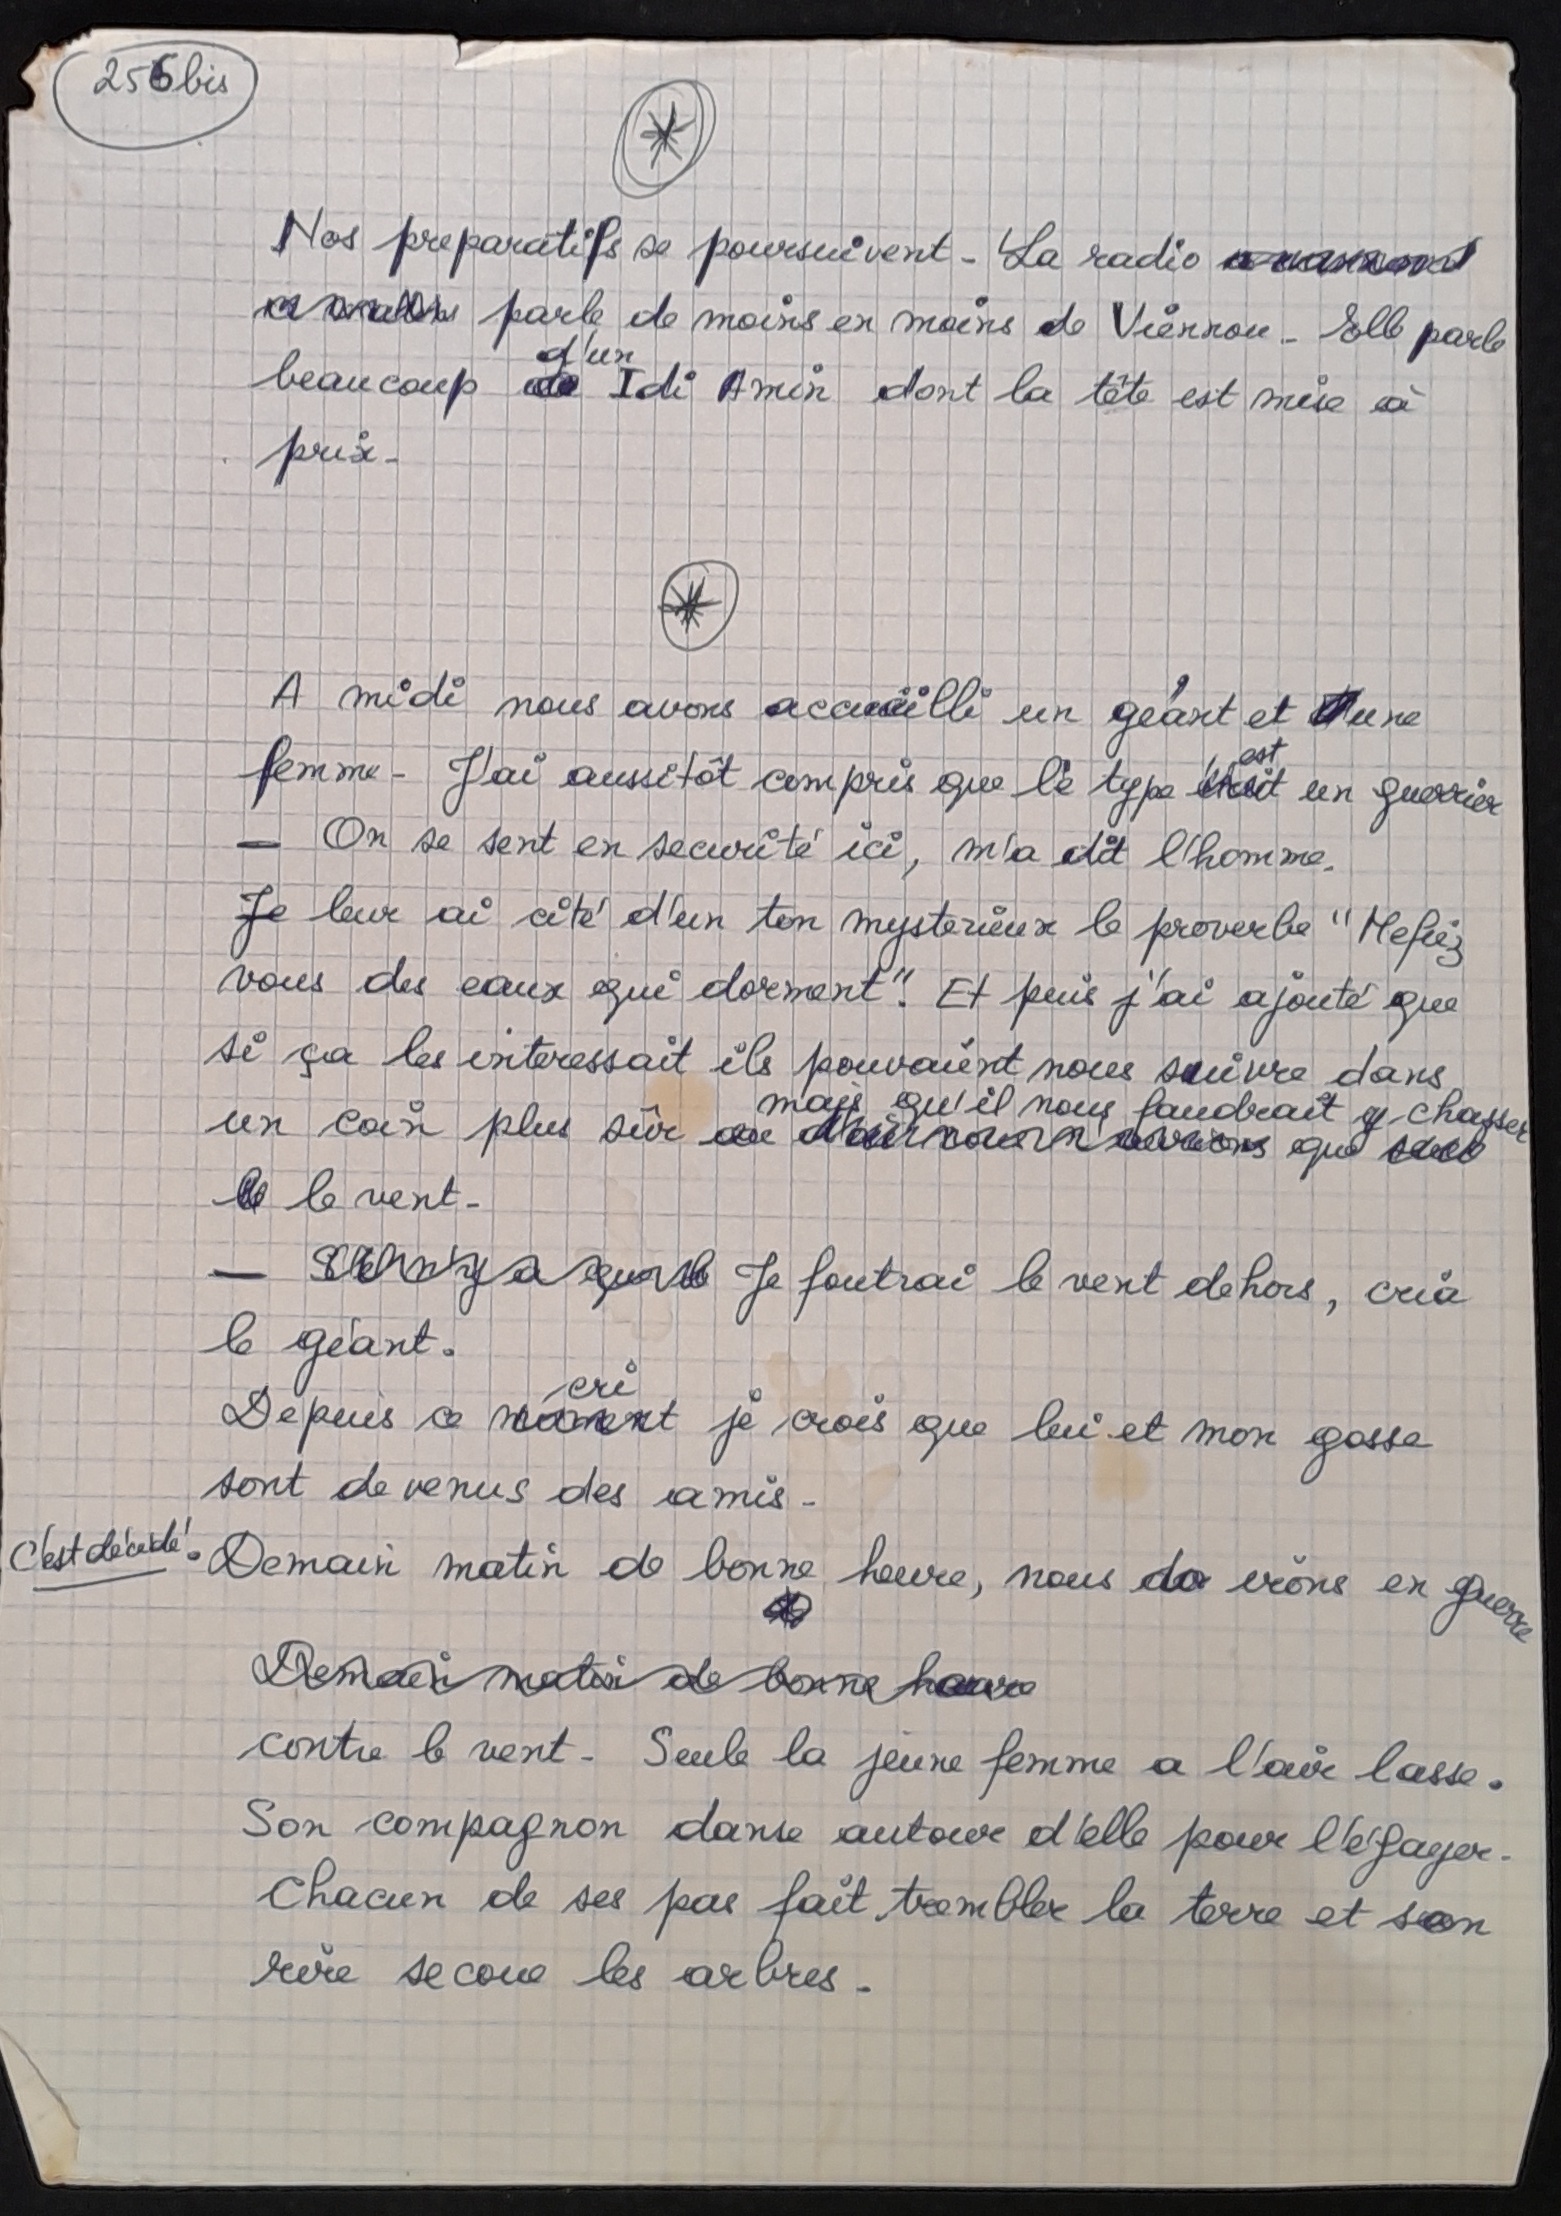 256bis
*
Nos preparatifs se poursuivent - La radio
parle de moins en moins de Viennou - Elle parle
d'un
beaucoup de Idi Amin dont la tête est mise à
prix -
*
A midi nous avons accueilli un géant et une
femme - J'ai aussitôt compris que le type était un guerrier
est
— On se sent en securité ici, m'a dit l'homme.
Je leur ai cité d'un ton mysterieux le proverbe "Mefiez
vous des eaux qui dorment". Et puis j'ai ajouté que
si ça les interessait ils pouvaient nous suivre dans
mais qu'il nous faudrait y chasser
un coin plus sûr que
le le vent -
— S'il n'y a que le Je foutrai le vent dehors, cria
le géant.
cri
Depuis ce moment je crois que lui et mon gosse
sont devenus des amis -
C'est décidé. Demain matin de bonne heure, nous irons en guerre
Demain matin de bonne heure
contre le vent - Seule la jeune femme a l'air lasse.
Son compagnon danse autour d'elle pour l'égayer -
Chacun de ses pas fait trembler la terre et son
rire secoue les arbres -